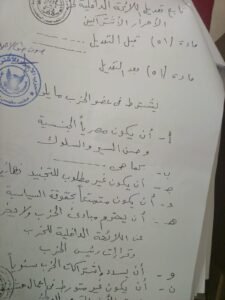 تابع تعديل للائحة الداخلية
الأحرار الاشتراكيين
مادة (٥١) قبل التعديل
مادة (٥١) بعد التعديل
يشترط فى عضو الحزب ما يلى
أ - أن يكون مصرياً الجنسية
وحسن السير والسلوك
ب - كما هى
جـ - أن يكون غير مطلوب للتجنيد
د - أن يكون متمتعاً بحقوقه السياسية
هـ - أن يحترم مبادئ الحزب ولا يخرج
عن اللائحة الداخلية للحزب
وقرارات رئيس الحزب
و - أن يسدد اشتراكات الحزب سنوياً
ن - أن يكون غير متورط فى أعمال